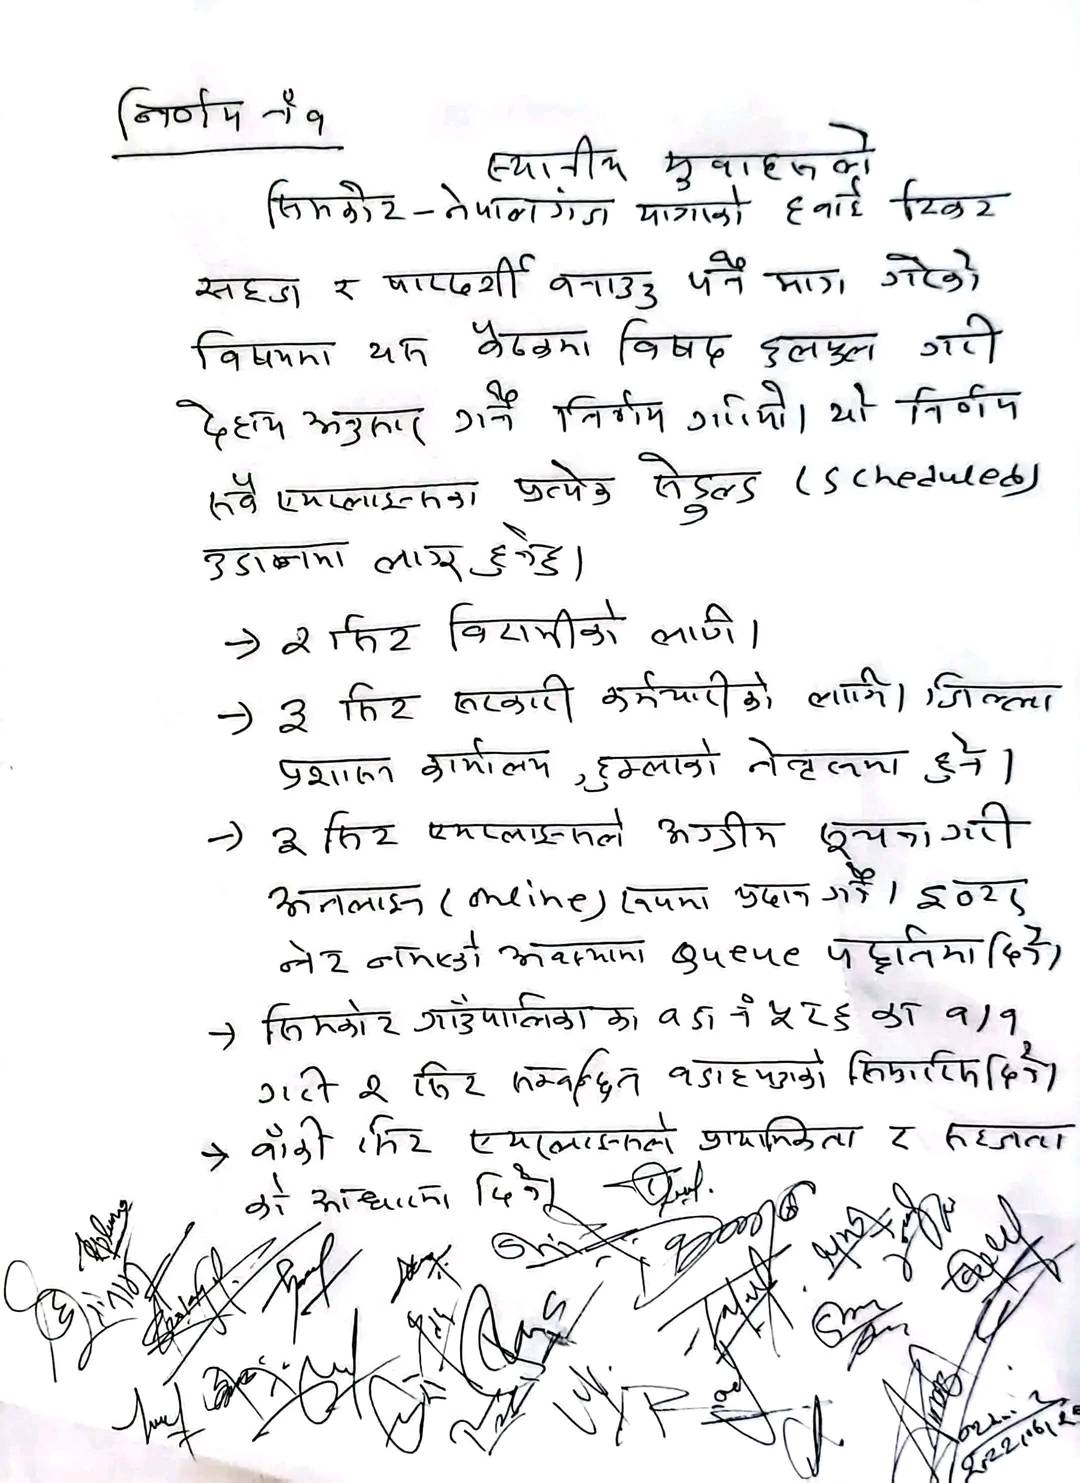 निर्णय नं १
स्थानीय युवाहरुले
सिमकोट - नेपालगंज यात्राको हवाई टिकट
सहज र पारदर्शी बनाउनु पर्ने माग गरेको
विषयमा यस बैठकमा विषद छलफल गरी
देहाय अनुसार गर्ने निर्णय गरियो। यो निर्णय
सबै एयरलाइन्सका प्रत्येक सेडुल्ड (Scheduled)
उडानमा लागू हुनेछ।
→ २ सिट बिरामीको लागि।
→ ३ सिट सरकारी कर्मचारीको लागि। जिल्ला
प्रशासन कार्यालय, हुम्लाको नेतृत्वमा हुने।
→ ३ सिट एयरलाइन्सले अग्रीम सूचना गरी
अनलाइन (online) रुपमा प्रदान गर्ने।
नेट नभएको अवस्थामा Queue पद्दतिमा दिने।
→ सिमकोट गाउँपालिका का वडा नं ५ र ६ का १/१
गरी २ सिट सम्बन्धित वडाध्यक्षको सिफारिसमा दिने।
→ बाँकी सिट एयरलाइन्सले प्राथमिकता र सहजता
को आधारमा दिने।